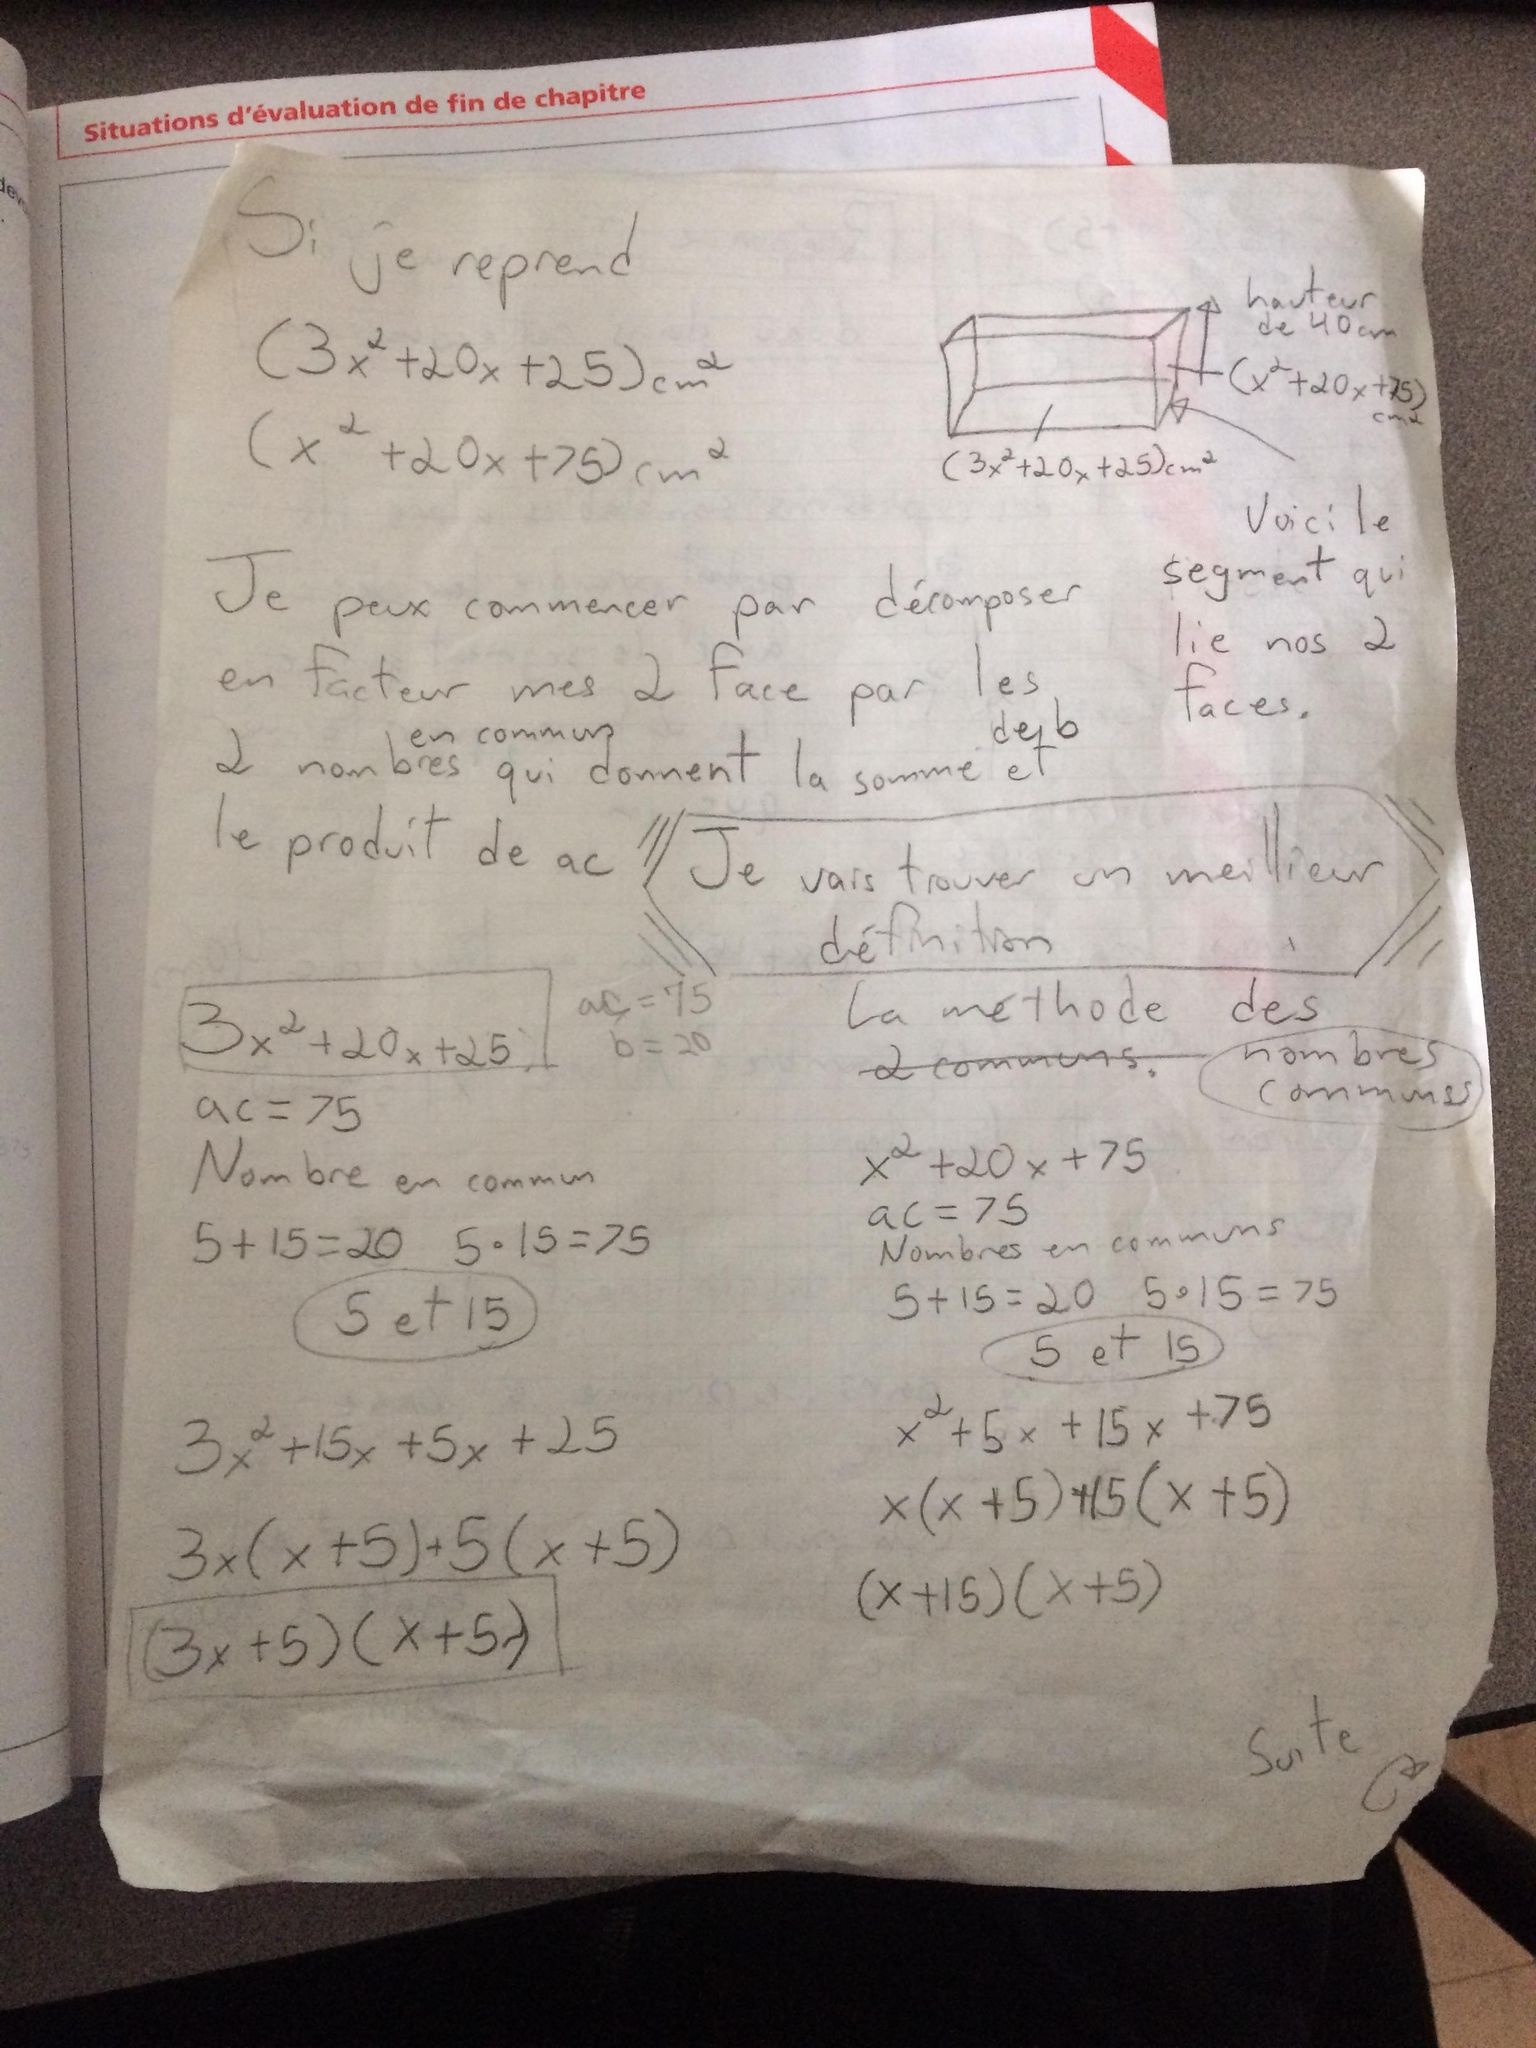 Situations d'évaluation de fin de chapitre
Si je reprend
(3x²+20x+25)cm²
(x²+20x+75)cm²
hauteur
de 40cm
(x²+20x+75)
cm²
(3x²+20x+25)cm²
Voici le
segment qui
lie nos 2
faces.
Je peux commencer par décomposer
en facteur mes 2 face par les
en commun de b
2 nombres qui donnent la somme et
le produit de ac
Je vais trouver un meillieur
définition
La méthode des
2 communs. nombres
communss
3x²+20x+25
ac=75
b=20
ac=75
Nombre en commun
5+15=20 5•15=75
5 et 15
3x²+15x+5x+25
3x(x+5)+5(x+5)
(3x+5)(x+5)
x²+20x+75
ac=75
Nombres en communs
5+15=20 5•15=75
5 et 15
x²+5x+15x+75
x(x+5)+15(x+5)
(x+15)(x+5)
Suite